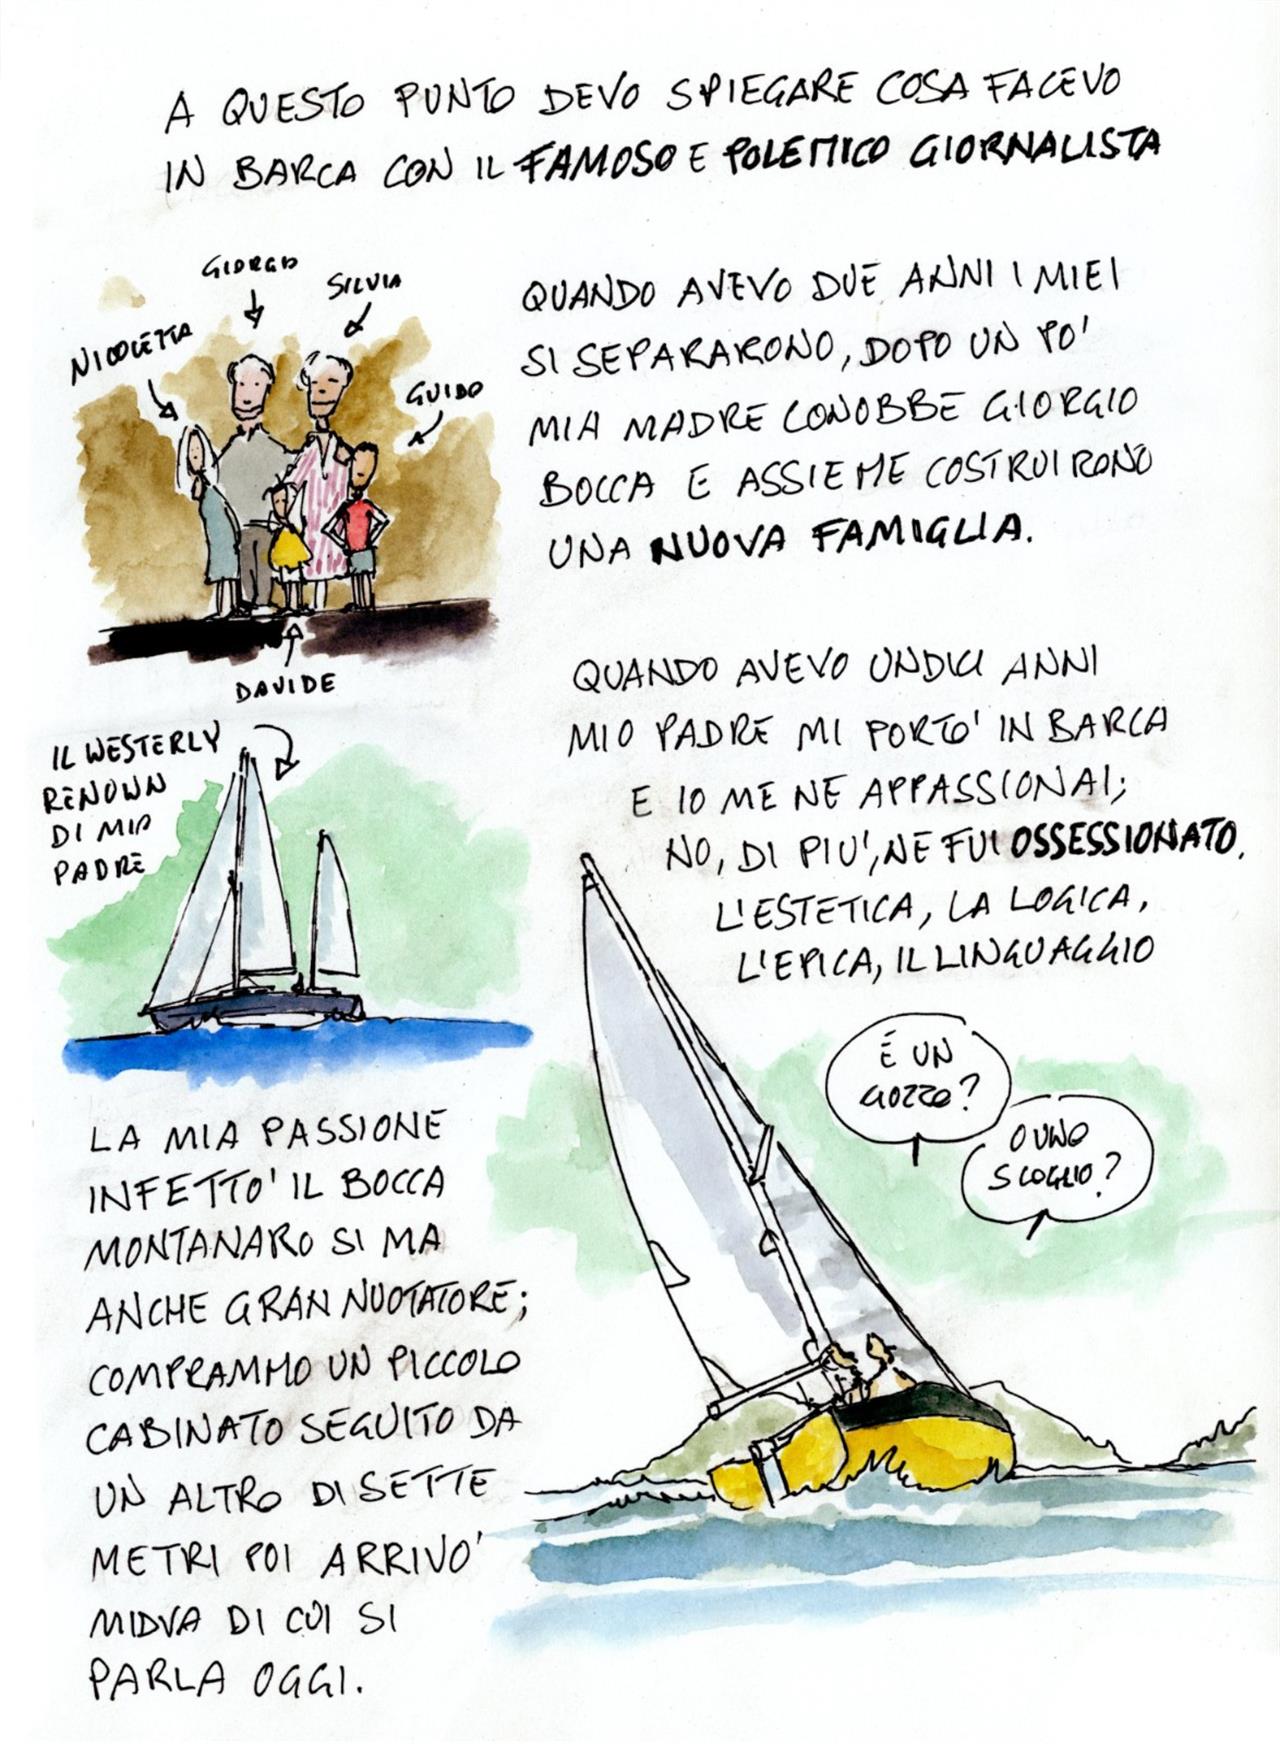 A QUESTO PUNTO DEVO SPIEGARE COSA FACEVO
IN BARCA CON IL FAMOSO E POLEMICO GIORNALISTA
GIORGIO
SILVIA
NICOLETTA
GUIDO
DAVIDE
QUANDO AVEVO DUE ANNI I MIEI
SI SEPARARONO, DOPO UN PO'
MIA MADRE CONOBBE GIORGIO
BOCCA E ASSIEME COSTRUIRONO
UNA NUOVA FAMIGLIA.
IL WESTERLY
RENOWN
DI MIO
PADRE
QUANDO AVEVO UNDICI ANNI
MIO PADRE MI PORTO' IN BARCA
E IO ME NE APPASSIONAI;
NO, DI PIU', NE FUI OSSESSIONATO.
L'ESTETICA, LA LOGICA,
L'EPICA, IL LINGUAGGIO
É UN
GOZZO?
O UNO
SCOGLIO?
LA MIA PASSIONE
INFETTO' IL BOCCA
MONTANARO SI MA
ANCHE GRAN NUOTATORE;
COMPRAMMO UN PICCOLO
CABINATO SEGUITO DA
UN ALTRO DI SETTE
METRI POI ARRIVO'
MIDVA DI CUI SI
PARLA OGGI.